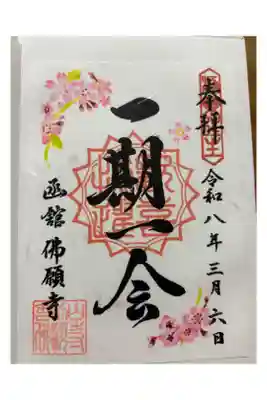 奉拝
令和八年三月六日
一期一会
函館佛願寺